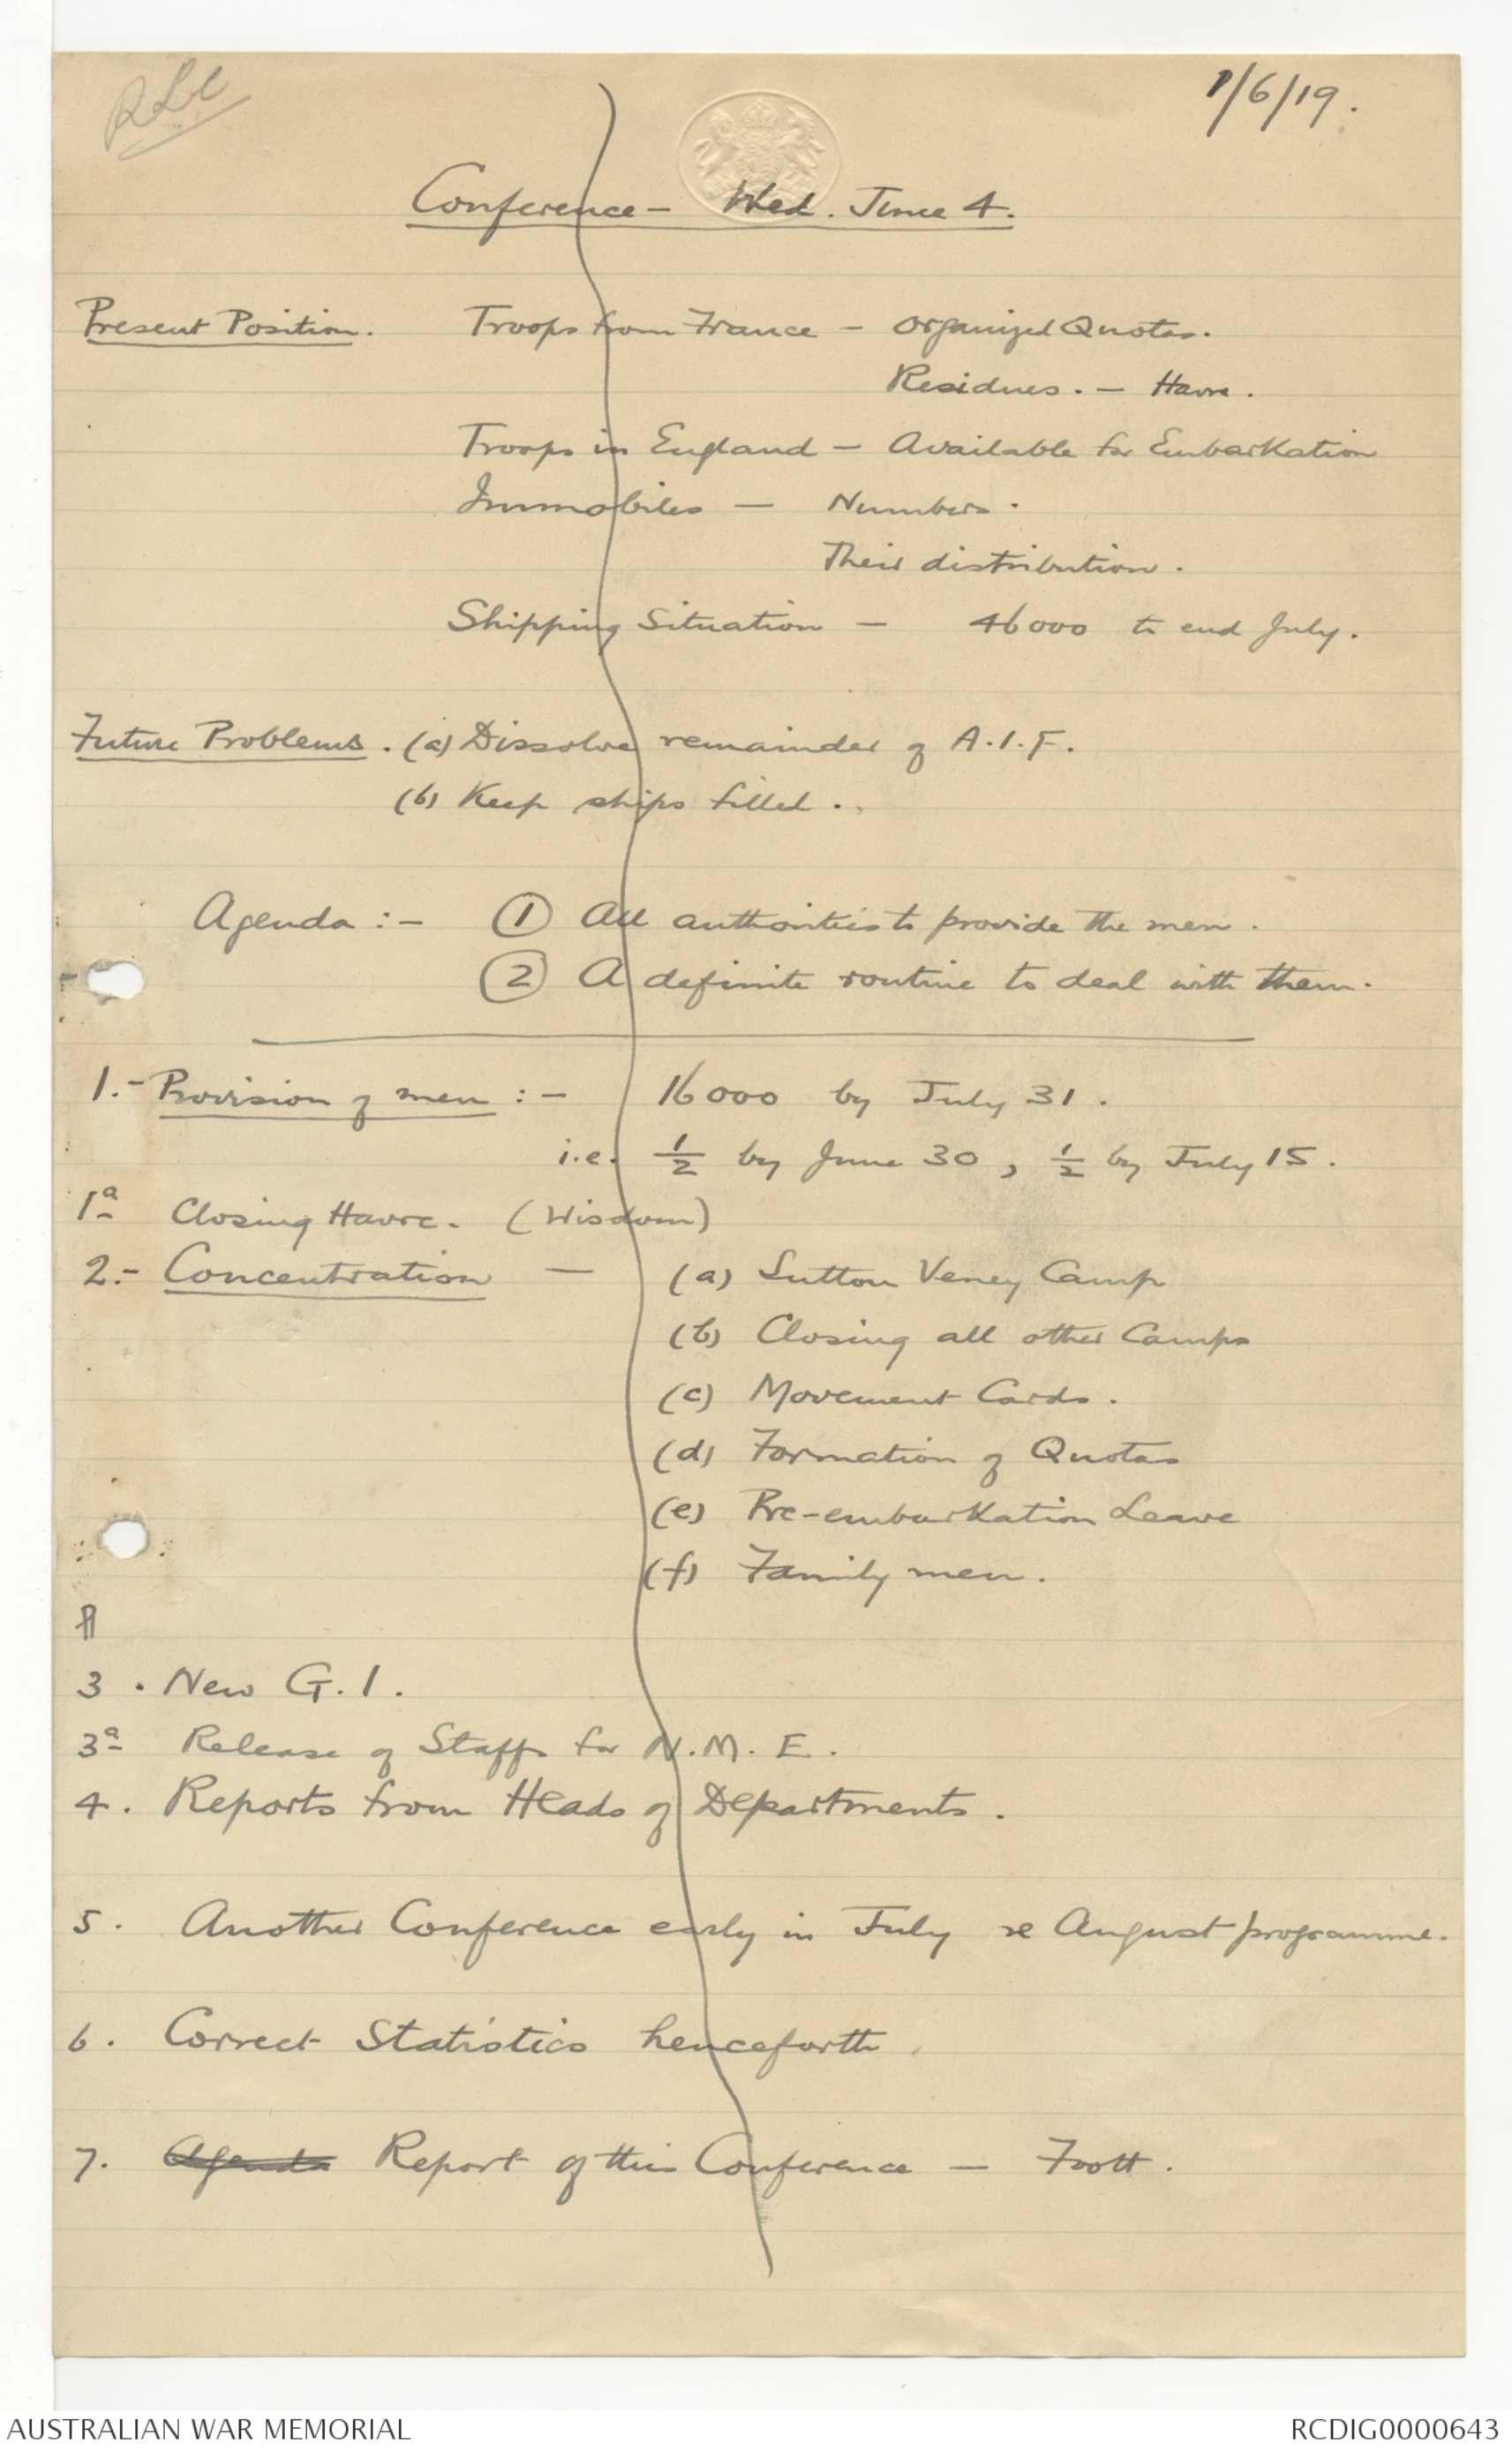 1/6/19.
Conference - Wed. June 4.
Present Position. Troops from France - Organized Quotas.
Residues. - Havre.
Troops in England - Available for Embarkation
Immobiles - Numbers.
Their distribution.
Shipping Situation - 46000 to end July.
Future Problems. (a) Dissolve remainder of A.I.F.
(b) Keep ships filled.
Agenda :- (1) All authorities to provide the men.
(2) A definite routine to deal with them.
1.- Provision of men :- 16000 by July 31.
i.e. 1/2 by June 30, 1/2 by July 15.
1a Closing Havre. (Wisdom)
2.- Concentration - (a) Sutton Veney Camp
(b) Closing all other Camps
(c) Movement Cards.
(d) Formation of Quotas
(e) Pre-embarkation Leave
(f) Family men.
3. New G.I.
3a Release of Staffs for N.M.E.
4. Reports from Heads of Departments.
5. Another Conference early in July re August programme.
6. Correct Statistics henceforth.
7. Agenda Report of this Conference - Foott.
AUSTRALIAN WAR MEMORIAL
RCDIG0000643